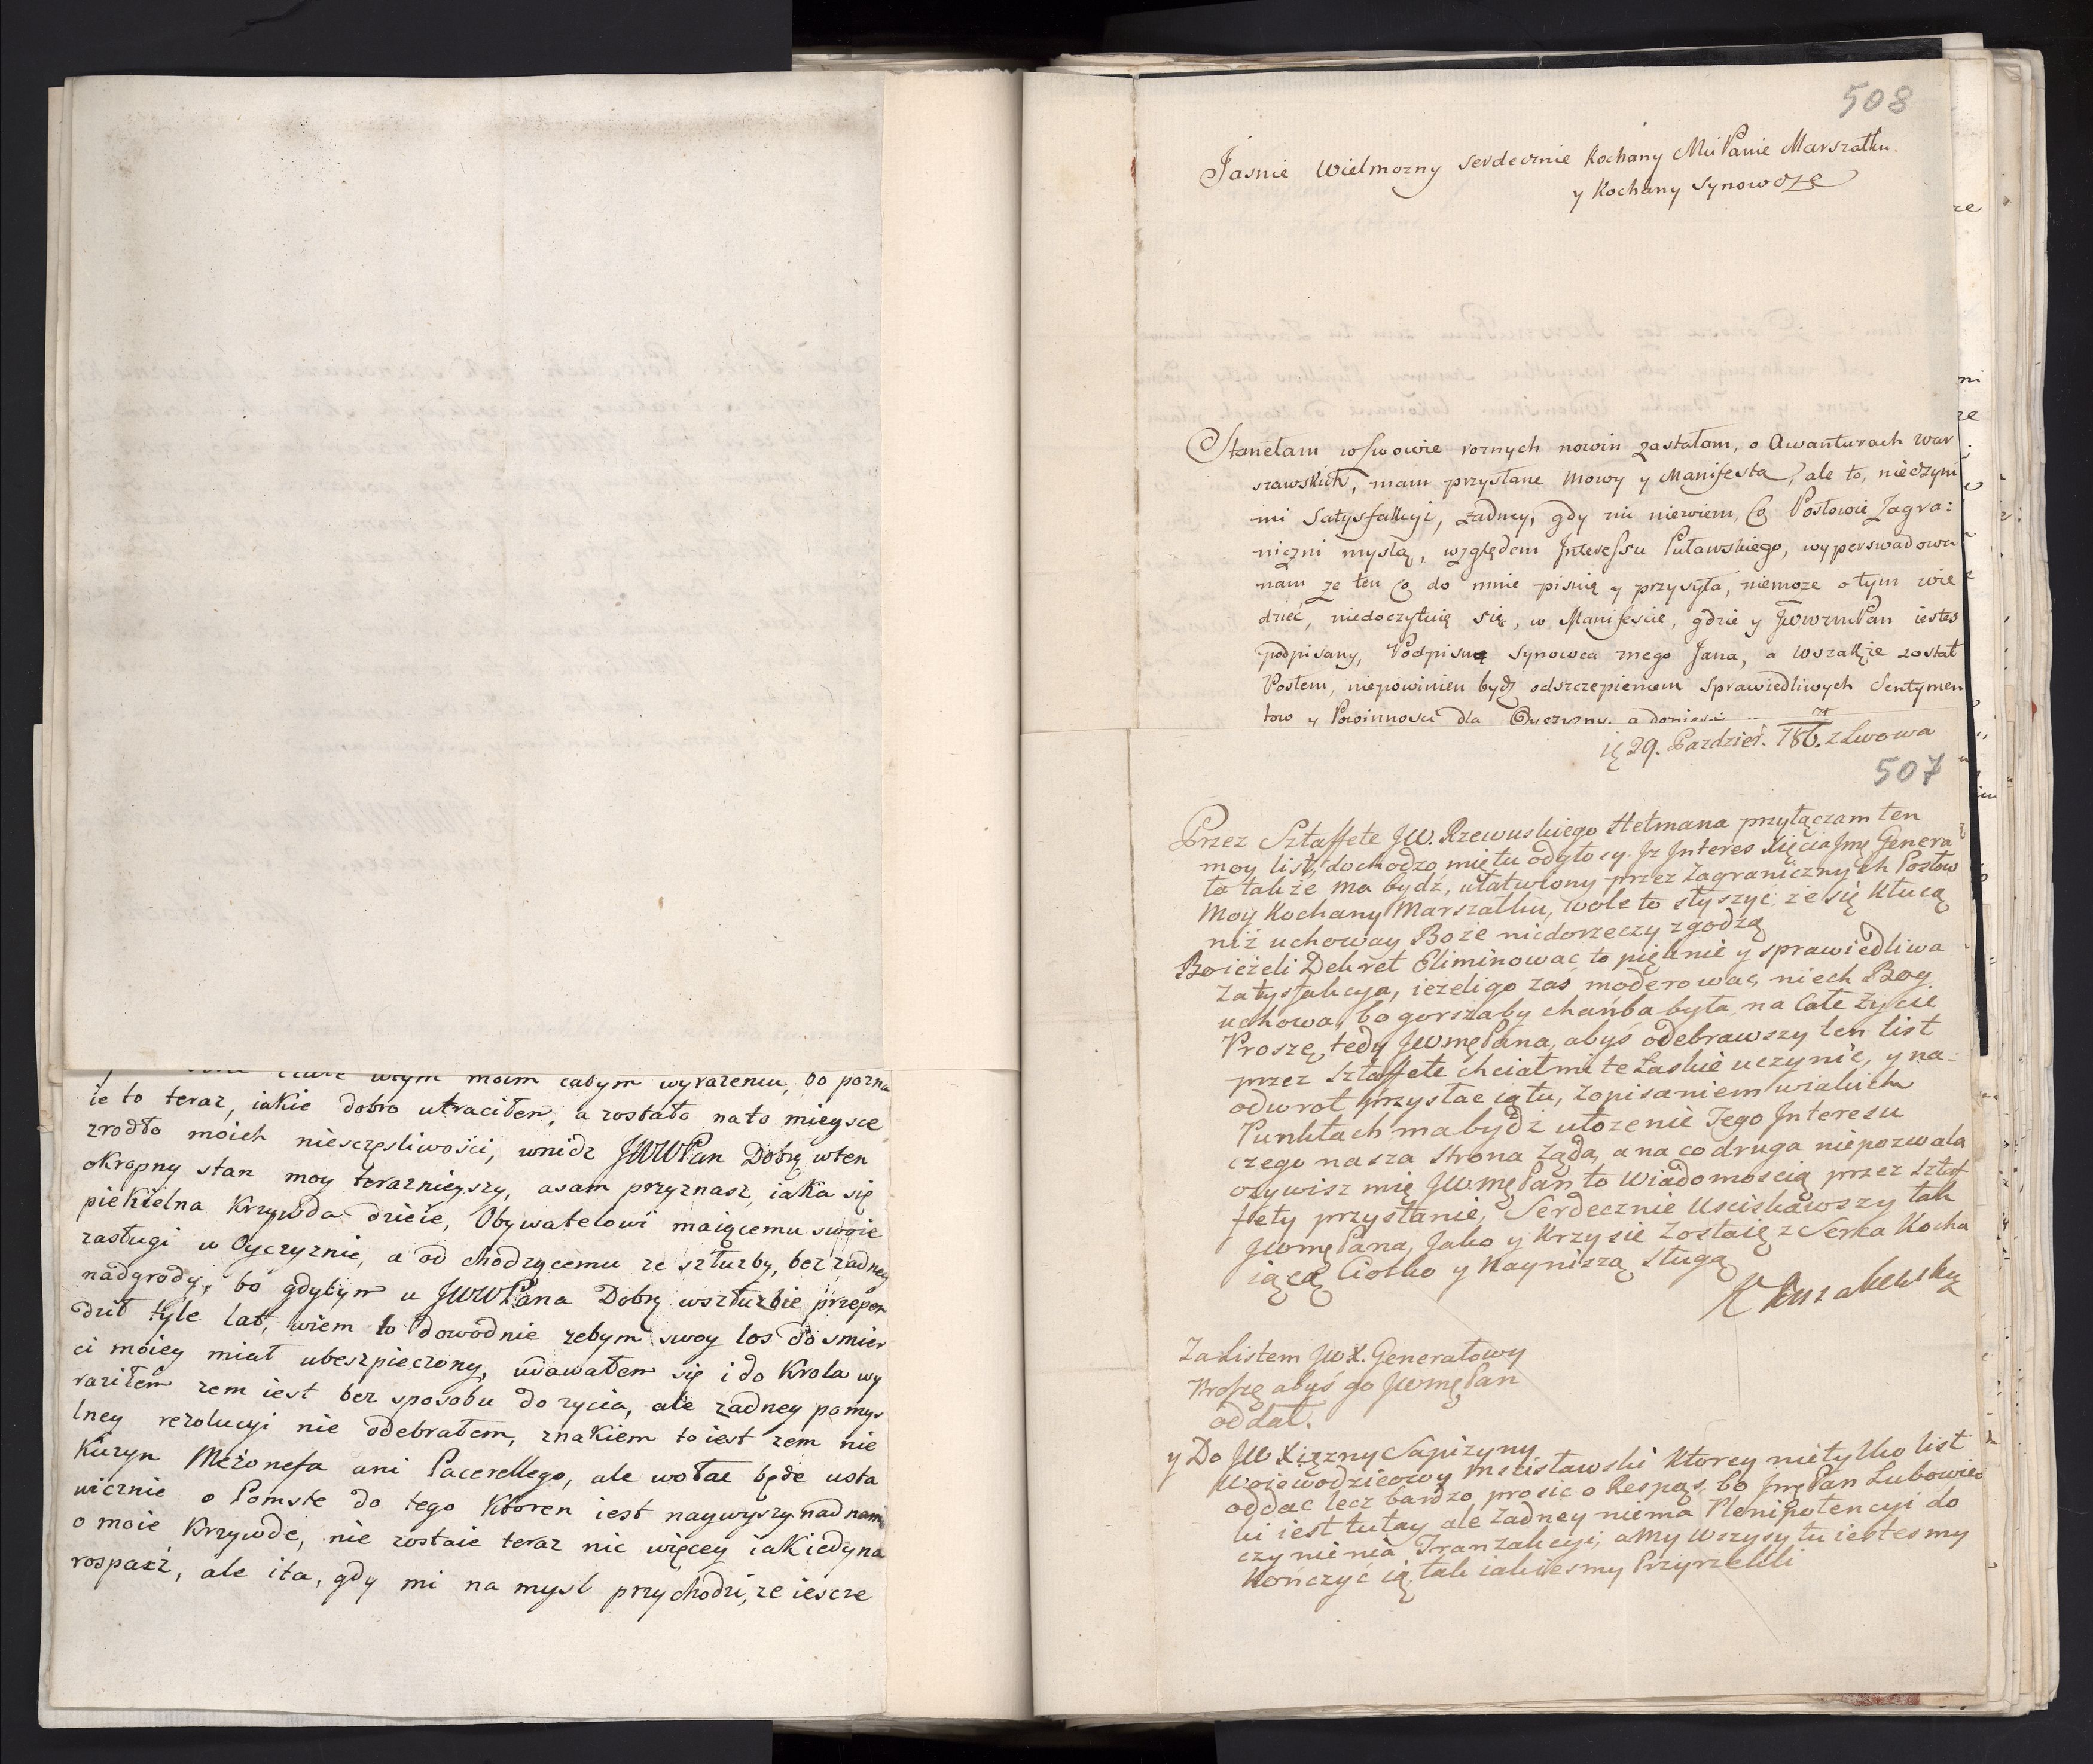 wtym moim całym wyrazeniu, bo pozna
ie to teraz, iakie dobro utraciłem, a zostało nato mieysce
zrodło moich niesczęsliwości, wnidz JWWPan Dobrę wten
okropny stan moy terazniejszy, asam przyznasz, iaka się
piekielna Krzywda dzieie, Obywatelowi maiącemu swoie
zasługi w Oyczyznie, a od chodzącemu ze szłuzby, bez zadney
nadgrody, bo gdybym u JWWPana Dobrę wszłuzbie przepen
dził tyle lat, wiem to dowodnie zebym swoy los do smier
ci moiey miał ubeszpieczony, udawałem się i do Krola wy
raziłem zem iest bez sposobu do zycia, ale zadney pomys
lney rezolucyi nie odebrałem, znakiem to iest zem nie
Kuzyn ani Pacerellego, ale wołac będe usta
wicznie o Pomste do tego Ktoren iest naywyszy nad nami
o moie Krzywde, nie zostaie teraz nic więcey iak iedyna
rospacz, ale i ta, gdy mi na mysl przychodzi, ze iescze
508
Jasnie Wielmozny serdecznie kochany Mći Panie Marszałku
y kochany Synowcze
Stanełam wLwowie roznych nowin zastałom, o Awanturach War
szawskich, mam przysłane Mowy y Manifesta, ale to, nieczyni
mi Satysfakcyi, zadney, gdy nic niewiem, Co Posłowie Zagra:
niczni myslą, względem Interessu Puławskiego, wyperswadowa
nam ze ten Co do mnie pisuię y przysyła, niemoze o tym wie
dzieć, niedoczytuię się, w Manifescie, gdzie y JWWMPan iestes
podpisany, Podpisu Synowca mego Jana, a wszakże został
Posłem, niepowinien bydz odszczepieniem Sprawiedliwych Sentymen
tow y Powinnosci dla Oyczyzny, a
29. Pazdzier. 786. z Lwowa
507
Przez Sztaffete JW. Rzewuskiego Hetmana przyłączam ten
moy list, dochodzą mię tu odgłosy. Jz Jnteres Xięcia Jmę Genera
ła także ma bydź, ułatwiony przez Zagranicznych Posłow
Moy Kochany Marszałku, wole to słyszyć, że się kłucą
niż uchoway Boże niedorzeczy zgodzą
Bo ieżeli Dekret Eliminować to pięknie y sprawiedliwa
Zatysfakcya, ieżeli go zas moderować, niech Bog
uchowa, bo gorszaby chańba była na Całe życie
Proszę tedy JWmę Pana, abyś odebrawszy ten list
przez Sztaffete chciał mi te Łaskie uczynić, y na-
odwrot przysłac ią tu, z opisaniem wiakich
Punktach ma bydź ułożenie Tego Jnteresu
czego nasza Strona Żąda, a na co druga niepozwala
ożywisz mię JWmę Pan to wiadomoscią przez Sztaf
fety przysłanie, Serdecznie Usciskawszy tak
JWmę Pana, Jako y Krzysie Zostaię z Serca Kocha
iącą Ciotko y Nayniższą Sługą
Za Listem JW X. Generałowy
Proszę abyś go JWmę Pan
oddał.
y Do JW Xiężny Sapiżyny
Woiewodzicowy Mscisławski Ktorey nietylko list
oddac lecz bardzo prosic o Respąs, bo Jmę Pan Lubowiec
ki iest tutay ale Żadney niema Plenipotencyi do
czynienia Tranzakcyi, a My wszysy tu iestesmy
kończyć ią tak iakiesmy Przyrzekli